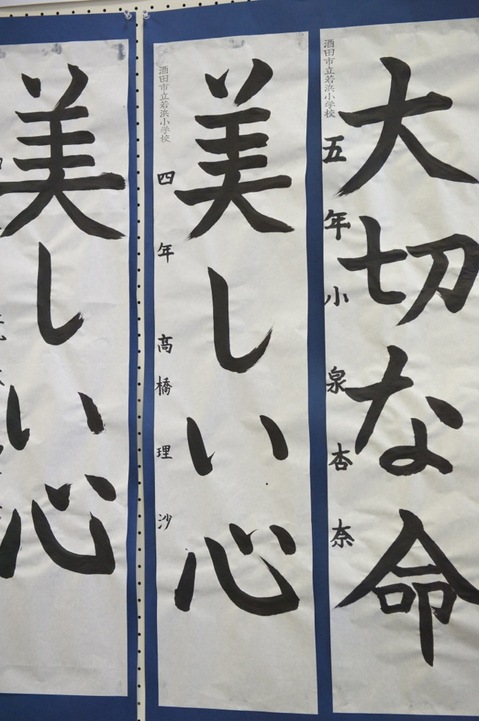 大切な命
酒田市立若浜小学校
五年 小泉杏奈
美しい心
酒田市立若浜小学校
四年 高橋理沙
美しい心